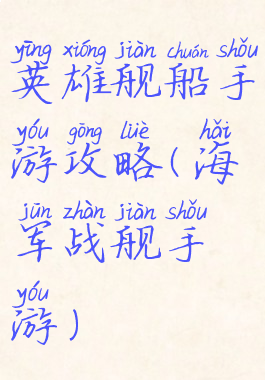 yīng xióng jiàn chuán shǒu
英雄舰船手
yóu gōng lüè hǎi
游攻略(海
jūn zhàn jiàn shǒu
军战舰手
yóu
游)